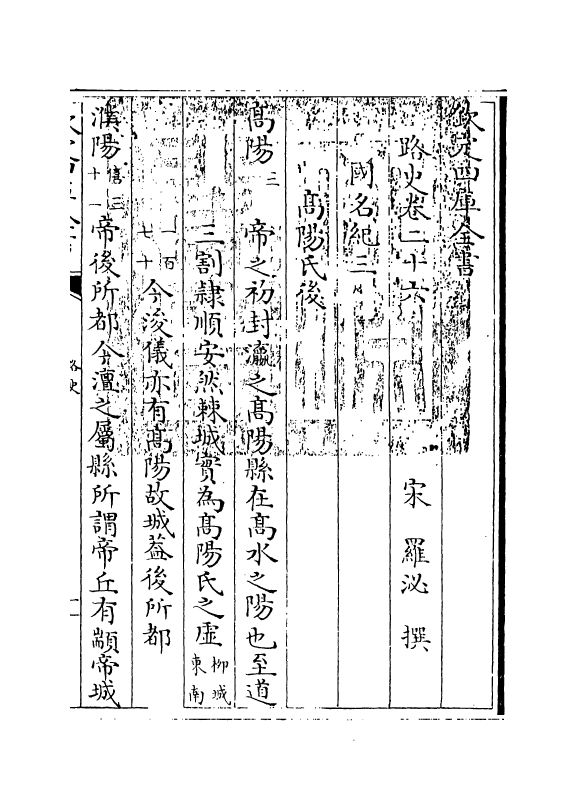 欽定四庫全書
路史卷二十六
宋 羅泌 撰
國名紀三
髙陽氏後
髙陽三 帝之初封瀛之髙陽縣在髙水之陽也至道
三割隷順安然棘城實為髙陽氏之虚柳城東南
一百七十今浚儀亦有髙陽故城葢後所都
濮陽 帝後所都今澶之屬縣所謂帝丘有顓帝城
路史